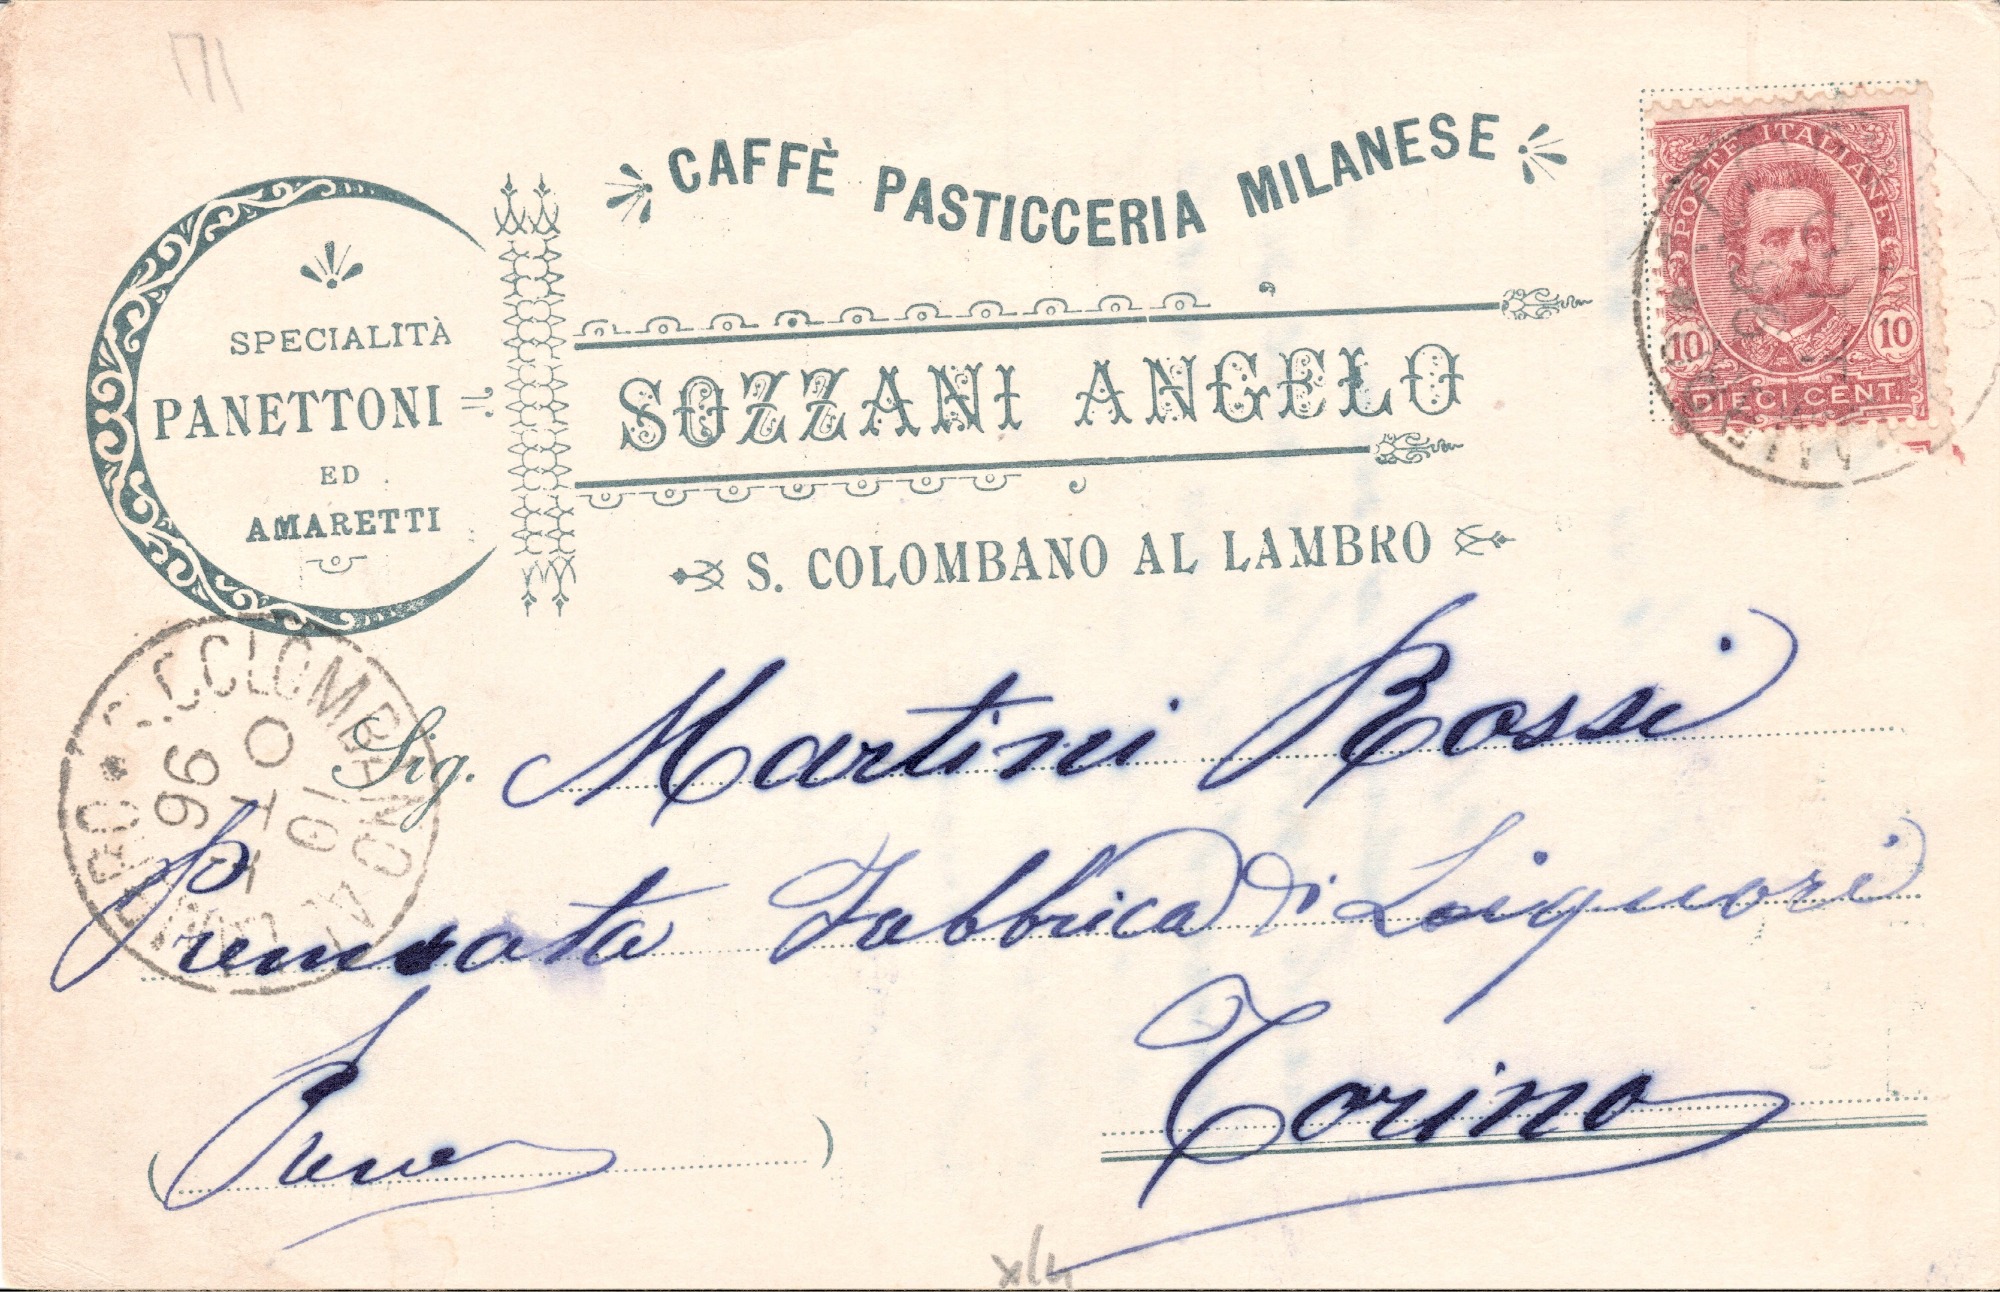 CAFFÈ PASTICCERIA MILANESE
SPECIALITÀ
PANETTONI
ED
AMARETTI
SOZZANI ANGELO
S. COLOMBANO AL LAMBRO
POSTE ITALIANE
10 10
DIECI CENT.
S. COLOMBANO AL LAMBRO
10
OT
96
Sig. Martini Rossi
Premiata Fabbrica di Liquori
Torino